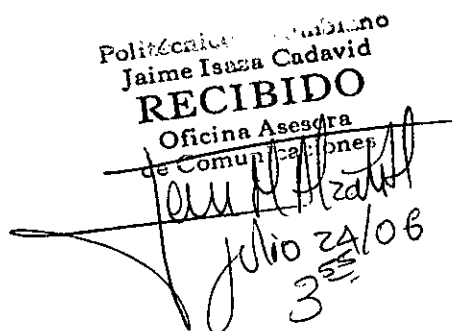 Politécnico
Jaime Isaza Cadavid
RECIBIDO
Oficina Asesora
de Comunicaciones
julio 24/06
3 55